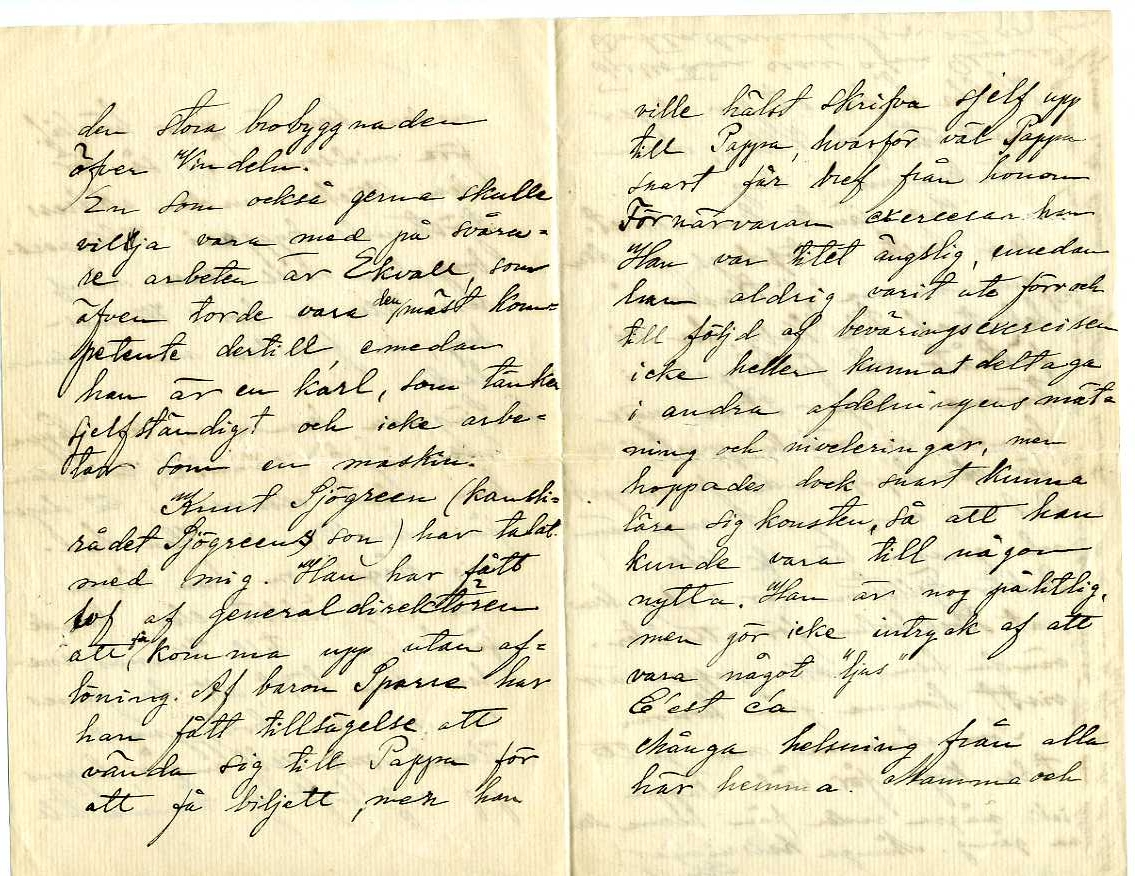 den stora brobyggnaden
öfver Vindeln.
En som också gerna skulle
vilja vara med på svåra=
re arbeten är Ekvall, som
äfven torde vara den mäst kom=
petente dertill emedan
han är en karl, som tänker
sjelfständigt och icke arbe=
tar som en maskin.
Knut Sjögreen (kansli=
rådet Sjögreens son) har talat
med mig. Han har fått
lof af generaldirektören
att få komma upp utan af=
löning. Af baron Sparre har
han fått tillsägelse att
vända sig till Pappa för
att få biljett, men han
ville hälst skrifva sjelf upp
till Pappa, hvarför väl Pappa
snart får bref från honom
Förnärvaran exercerar han
Han var litet ängslig, emedan
han aldrig varit ute förr och
till följd af beväringsexercisen
icke heller kunnat deltaga
i andra afdelningens mät=
ning och nivelleringar, men
hoppades dock snart kunna
lära sig konsten, så att han
kunde vara till någon
nytta. Han är nog pålitlig,
men gör icke intryck af att
vara något "ljus"
C'est ça
Många helsning från alla
här hemma. Mamma och